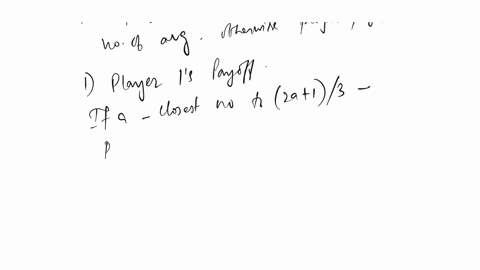 no. of avg. Otherwise
1) Player 1's Payoff.
If a - closest no to (2a+1)/3 -
P